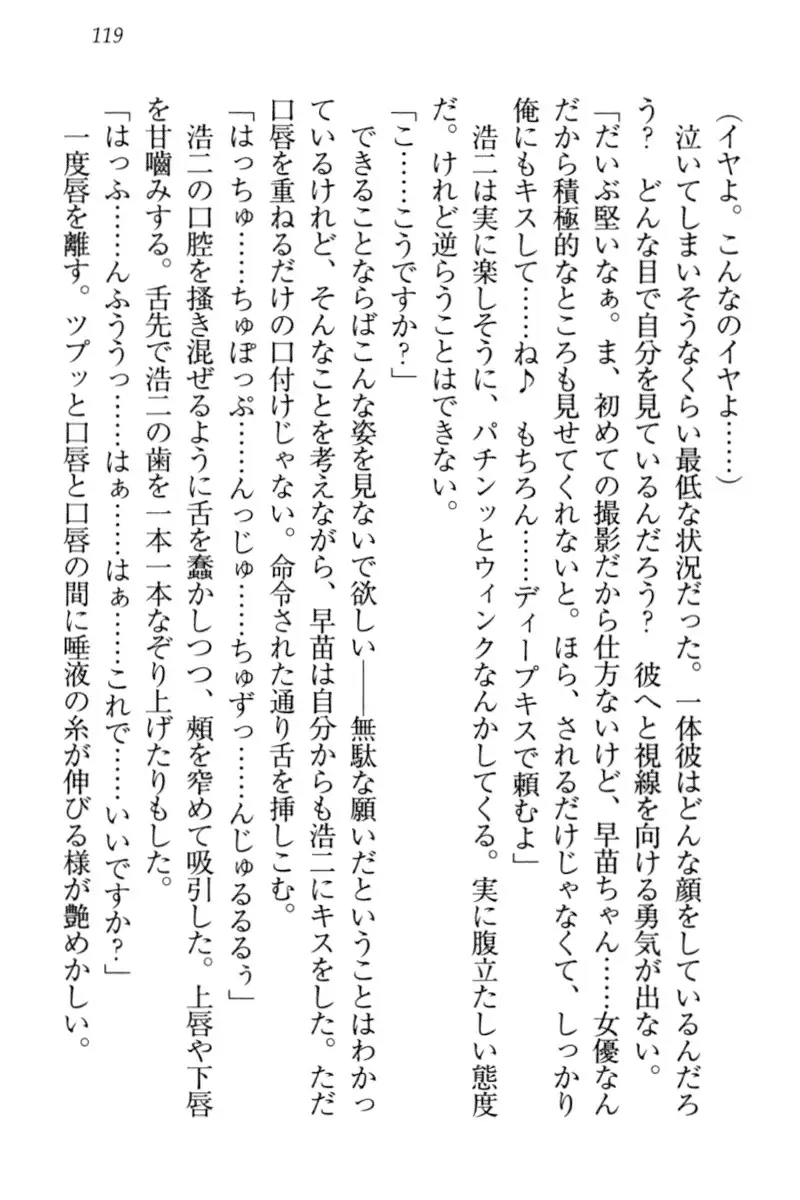 119
(イヤよ。こんなのイヤよ……)
　泣いてしまいそうなくらい最低な状況だった。一体彼はどんな顔をしているんだろ
う?　どんな目で自分を見ているんだろう?　彼へと視線を向ける勇気が出ない。
「だいぶ堅いなぁ。ま、初めての撮影だから仕方ないけど、早苗ちゃん……女優なん
だから積極的なところも見せてくれないと。ほら、されるだけじゃなくて、しっかり
俺にもキスして……ね♪　もちろん……ディープキスで頼むよ」
　浩二は実に楽しそうに、パチンッとウィンクなんかしてくる。実に腹立たしい態度
だ。けれど逆らうことはできない。
「こ……こうですか?」
　できることならばこんな姿を見ないで欲しい――無駄な願いだということはわかっ
ているけれど、そんなことを考えながら、早苗は自分からも浩二にキスをした。ただ
口唇を重ねるだけの口付けじゃない。命令された通り舌を挿しこむ。
「はっちゅ……ちゅぽっぷ……んっじゅ……ちゅずっ……んじゅるるるぅ」
　浩二の口腔を掻き混ぜるように舌を蠢かしつつ、頬を窄めて吸引した。上唇や下唇
を甘嚙みする。舌先で浩二の歯を一本一本なぞり上げたりもした。
「はっふ……んふううっ……はぁ……はぁ……これで……いいですか?」
　一度唇を離す。ツプッと口唇と口唇の間に唾液の糸が伸びる様が艶めかしい。